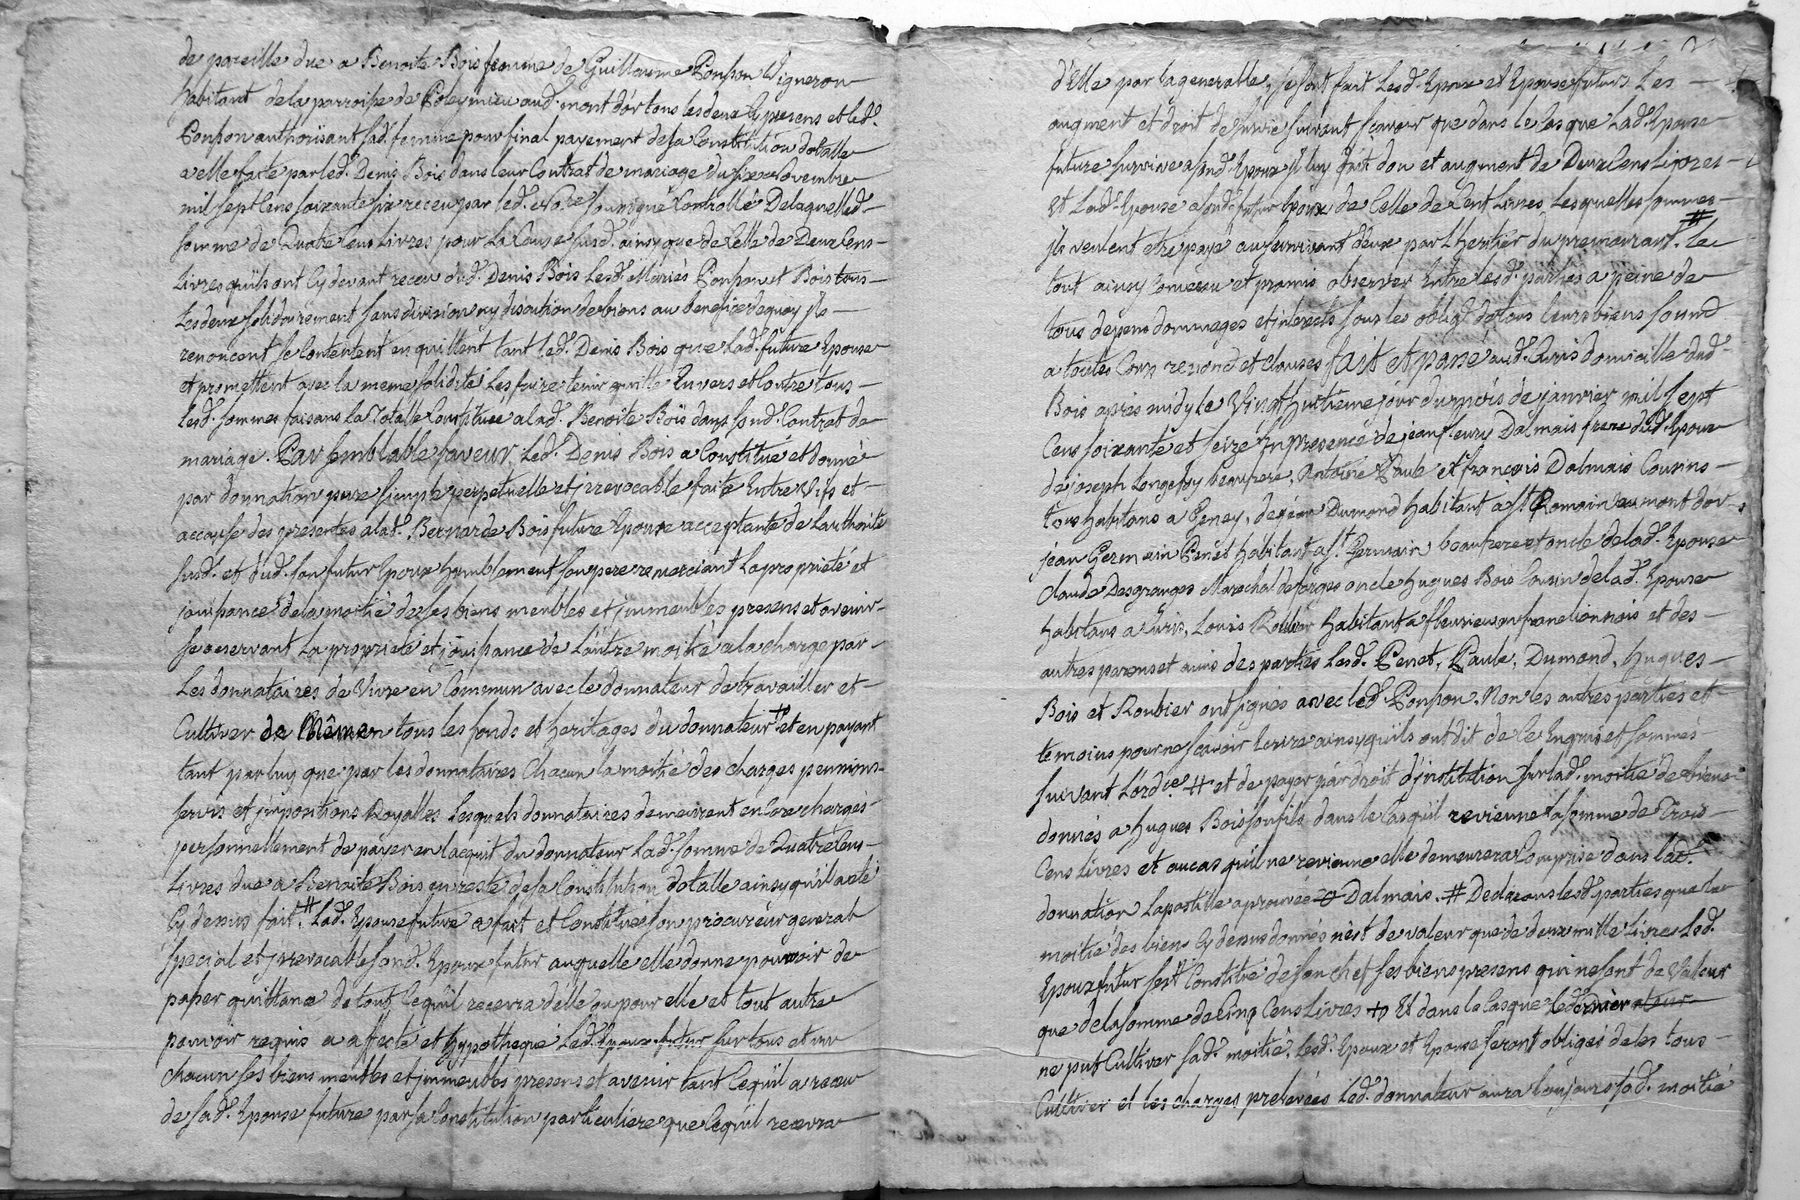 de pareille due a Benoite Bois femme de Guillaume Ponson Vigneron
habitant de la parroisse de Poleymieu aud. mont d'or tous les deux Cy presens et led.
Ponson authorisant sad. femme pour final payement de sa Constitution dotalle
a elle faite par led. Denis Bois dans leur Contrat de mariage du Novembre
mil sept Cens soixante six receu par led. No.re soussigné Controllé De laquelle d.
somme de Quatre Cens Livres pour La Cause susd. ainsy que de Celle de Deux Cens
Livres quils ont Cy devant receu dud. Denis Bois Lesd. Mariés Ponson et Bois tous
Les deux solidairement sans division ny discution de biens au benefice de quoy ils
renoncent se Contentent en quittent tant led. Denis Bois que Lad. future Epouse
et promettent avec la meme solidité Les faire tenir quitte Envers et Contre tous
Lesd. sommes faisans La totalle Constituée a lad. Benoite Bois dans sond. Contrat de
mariage. Par semblable faveur Led. Denis Bois a Constitué et donné
par donnation pure simple perpetuelle et irrevocable faite Entre Vifs et
a cause des presentes a lad. Bernarde Bois future Epouse acceptante de Lauthorité
susd. et dud. son futur Epoux humblement son pere remerciant La proprieté et
jouissance de la moitié de ses biens meubles et immeubles presens et avenir
se reservant La proprieté et jouissance de L'autre moitié a la charge par
Les donnataires de Vivre en Commun avec le donnateur de travailler et
Cultiver de Même tous les fonds et heritages du donnateur # et en payant
tant par luy que par les donnataires Chacun la moitié des charges pensions
servis et impositions Royalles Lesquels donnataires demeurent en Core chargés
personnellement de payer en Lacquit du donnateur Lad. somme de Quatre Cens
Livres due a Benoite Bois en reste de sa Constitution dotalle ainsy qu'il a eté
Cy dessus fait. # Lad. Epouse future a fait et Constitué son procureur general
special et irrevocable sond. Epoux futur auquelle elle donne pouvoir de
passer quittance de tout Ce qu'il recevra d'elle ou pour elle et tout autre
pouvoir requis a affecté et hypothequé Led. Epoux futur sur tous et un
chacun ses biens meubles et immeubles presens et avenir tant Ce qu'il a receu
de sad. Epouse future par sa Constitution particuliere que Ce qu'il recevra
d'Elle par La generalle, se sont fait Lesd. Epoux et Epouse futurs Les
augment et droit de survie suivant scavoir que dans le Cas que Lad. Epouse
future survive a sond. Epoux il luy fait don et augment de Deux Cens Livres
Et Lad. Epouse a sond. futur Epoux de Celle de Cent Livres Lesquelles sommes
ils veulent etre payé au survivant d'eux par L'heritier du premourant. # Le
tout ainsy Convenu et promis observer Entre lesd. parties a peine de
tous depens dommages et interests sous les oblig. de tous leurs biens soumd
a toutes Cours renond et clauses fait et passé aud. Curis domicille dud.
Bois après midy le Vingt huitième jour du mois de janvier mil sept
Cens soixante et seize En presence de jean fleury Dalmais frere dud. Epoux
de joseph Longefay beaufrere, Antoine Paule et françois Dalmais Cousins
tous habitans a Geney, de jean Dumond habitant a s.t Romain au mont dor
jean Germain Penet habitant a s.t Germain beaufrere et oncle de lad. Epouse
Claude Desgranges Marechal de forges oncle hugues Bois Cousin de lad. Epouse
habitans a Curis, Louis Roubier habitant a fleurieu en franclionnois et des
autres parens et amis des parties Lesd. Penet, Paule, Dumond, hugues
Bois et Roubier ont signés avec led. Ponson. Non les autres parties et
temoins pour ne scavoir Ecrire ainsy qu'ils ont dit de Ce Enquis et sommés
suivant L'ord.ce # et de payer par droit d'institution sur lad. moitié de biens
donnés a hugues Bois son fils dans le Cas qu'il revienne la somme de Trois
Cens Livres et au cas qu'il ne revienne elle demeurera Comprise dans lad.
donnation Lapostille aprouvée Dalmais. # Declarans lesd. parties que la
moitié des biens Cy dessus donnés n'est de valeur que de deux mille Livres Led.
Epoux futur s'est Constitué de son chef ses biens presens qui ne sont de Valeur
que de la somme de Cinq Cens Livres # Et dans le Cas que led.
ne put Cultiver sad. moitié, Lesd. Epoux et Epouse seront obligés de les tous
Cultiver et les charges prelevées Led. donnateur aura toujours sad. moitié